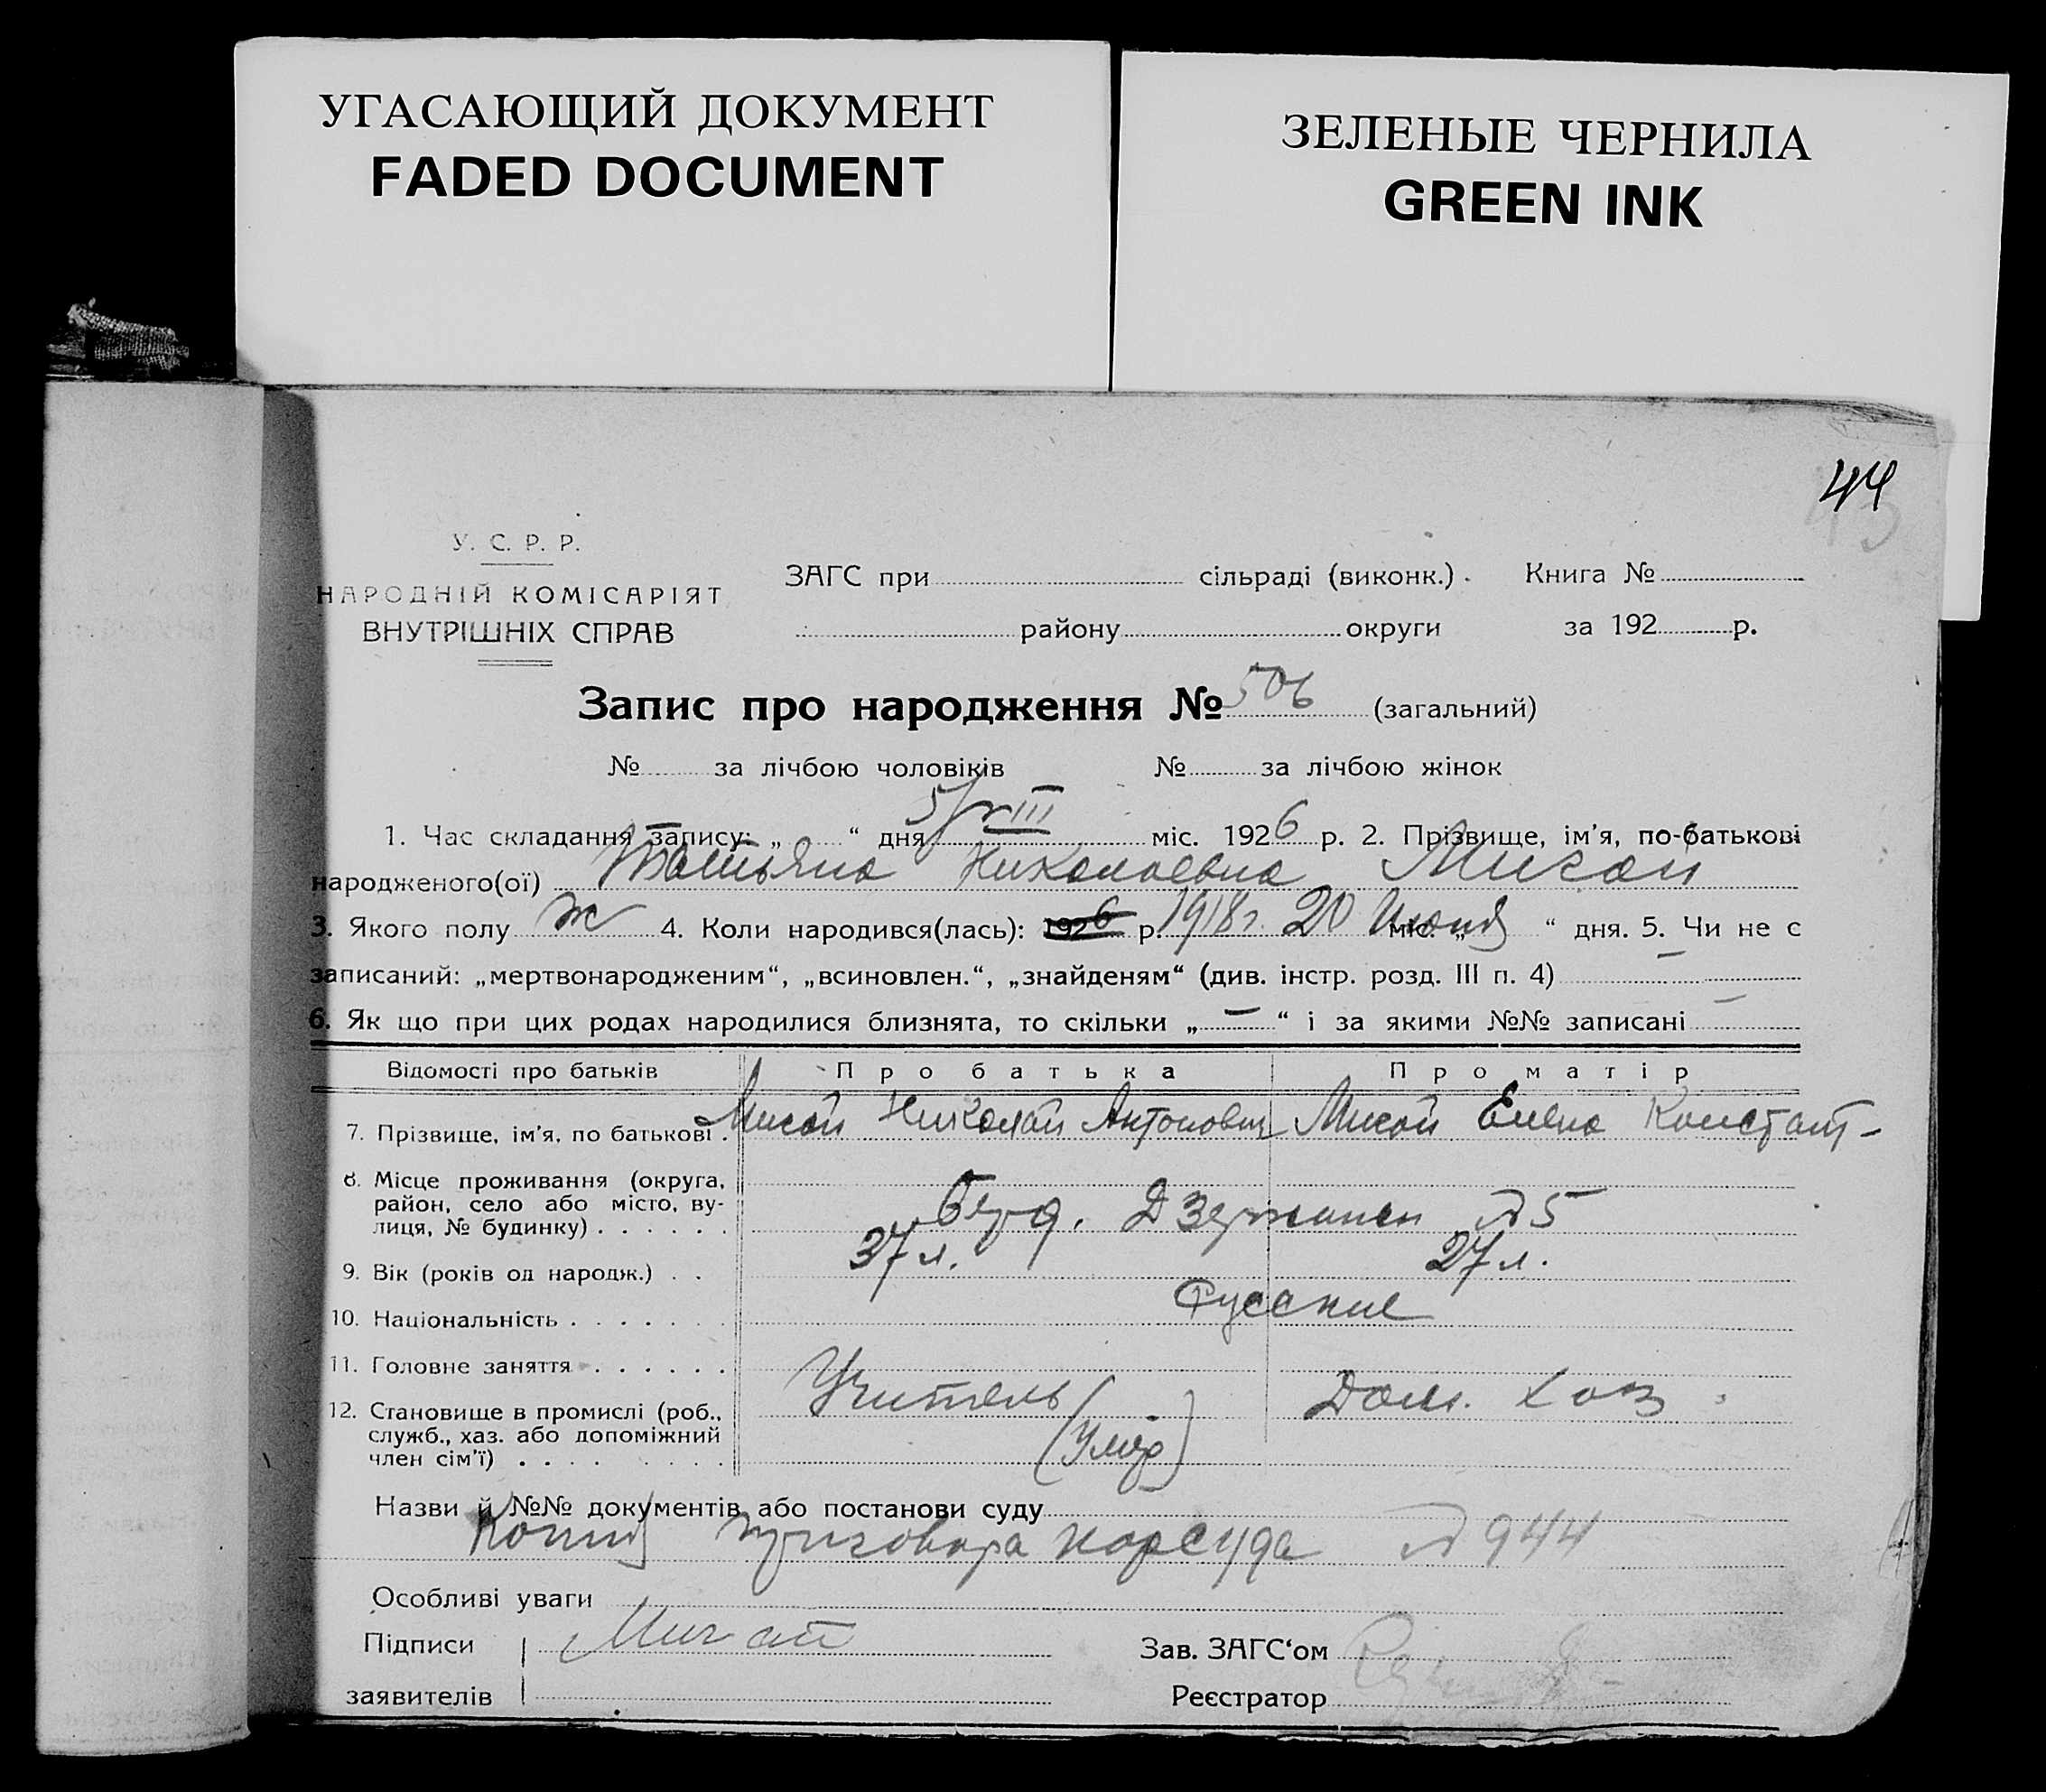 УГАСАЮЩИЙ ДОКУМЕНТ
FADED DOCUMENT
ЗЕЛЕНЫЕ ЧЕРНИЛА
GREEN INK
44
43
У. С. Р. Р.
НАРОДНІЙ КОМІСАРІЯТ
ВНУТРІШНІХ СПРАВ
ЗАГС при сільраді (виконк.) Книга №
району округи за 192 р.
Запис про народження № 506 (загальний)
№ за лічбою чоловіків № за лічбою жінок
5/VIII
1. Час складання запису: „ “ дня міс. 1926 р. 2. Прізвище, ім'я, по-батькові
народженого(ої) Татьяна Николаевна Мисан
3. Якого полу ж 4. Коли народився(лась): 1926 р. 1918 г. 20 Июня міс. „ “ дня. 5. Чи не є
записаний: „мертвонародженим“, „всиновлен.“, „знайденям“ (див. інстр. розд. III п. 4) —
6. Як що при цих родах народилися близнята, то скільки „ — “ і за якими №№ записані —
Відомості про батьків Про батька Про матір
7. Прізвище, ім'я, по батькові . Николай Антонович Елена Констант-
8. Місце проживання (округа,
район, село або місто, ву-
лиця, № будинку) . . . . . . № 5
9. Вік (років од народж.) . . 37 л. 27 л.
10. Національність . . . . . . . Русские
11. Головне заняття . . . . . . Учитель Дом. хоз
12. Становище в промислі (роб.,
служб., хаз. або допоміжний
член сім'ї) . . . . . . . . (Умер)
Назви й №№ документів або постанови суду
Копия приговора нарсуда № 944
Особливі уваги
Підписи Зав. ЗАГС‘ом
заявителів Реєстратор